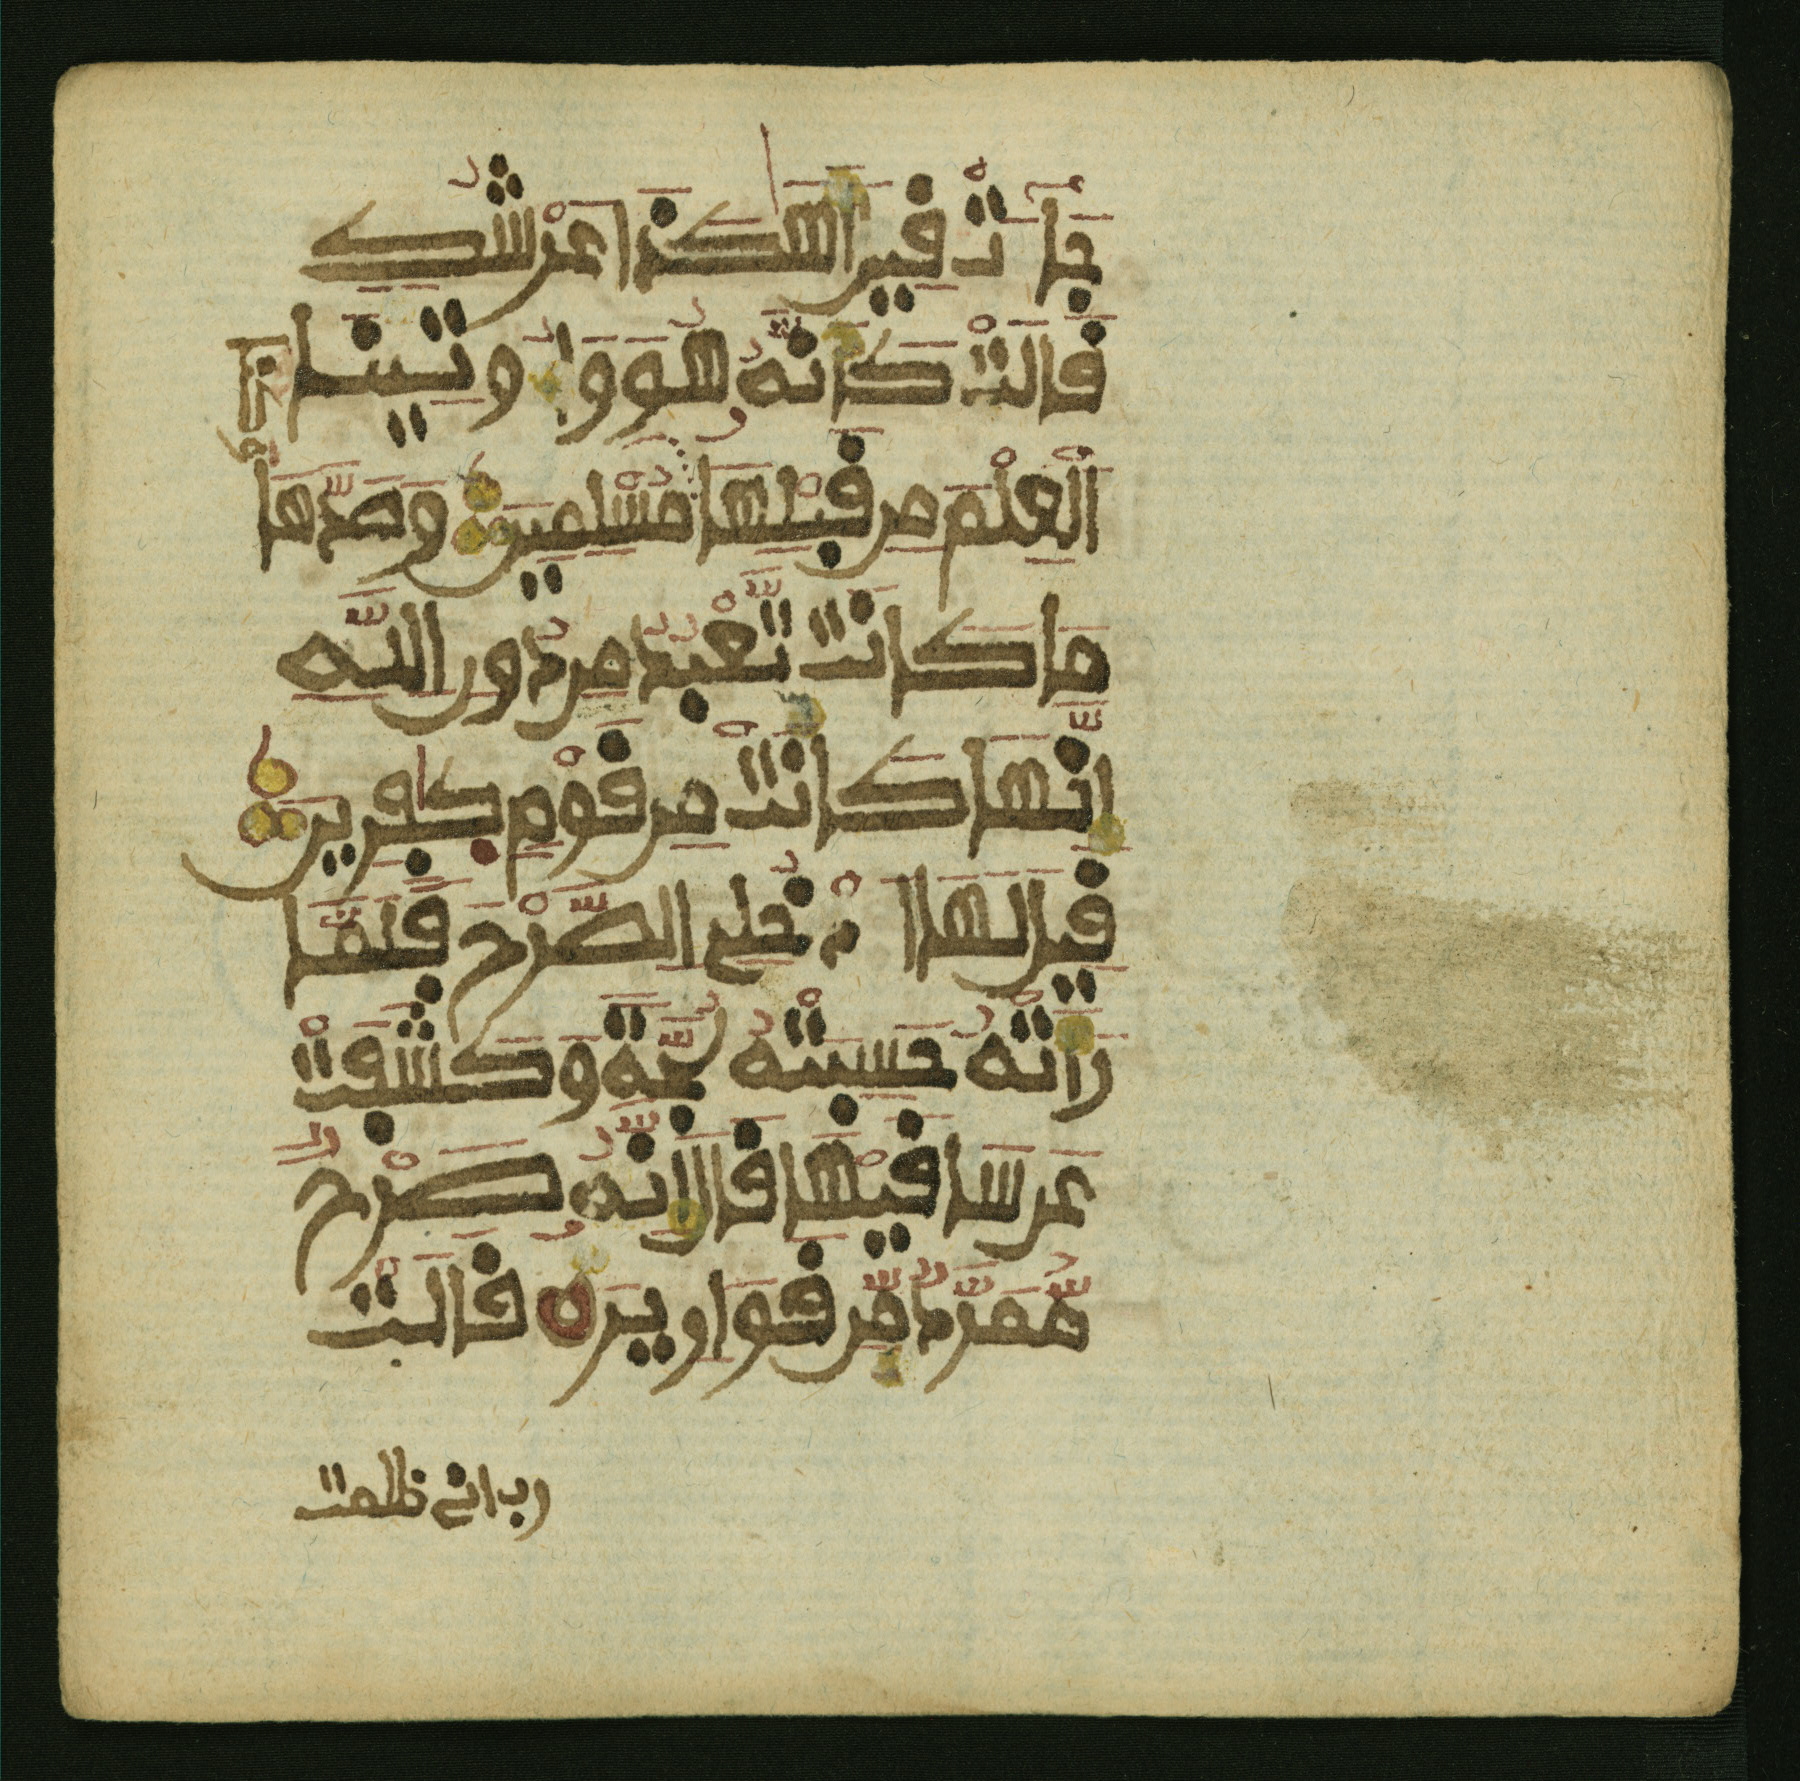 جاءت قيل اهكذا عرشك
قالت كانه هو واوتينا
العلم من قبلها مسلمين وصدها
ما كانت تعبد من دون الله
انها كانت من قوم كفرين
قيل لها ادخلي الصرح فلما
راته حسبته لجة وكشفت
عن ساقيها قال انه صرح
ممرد من قوارير قالت
رب اني ظلمت